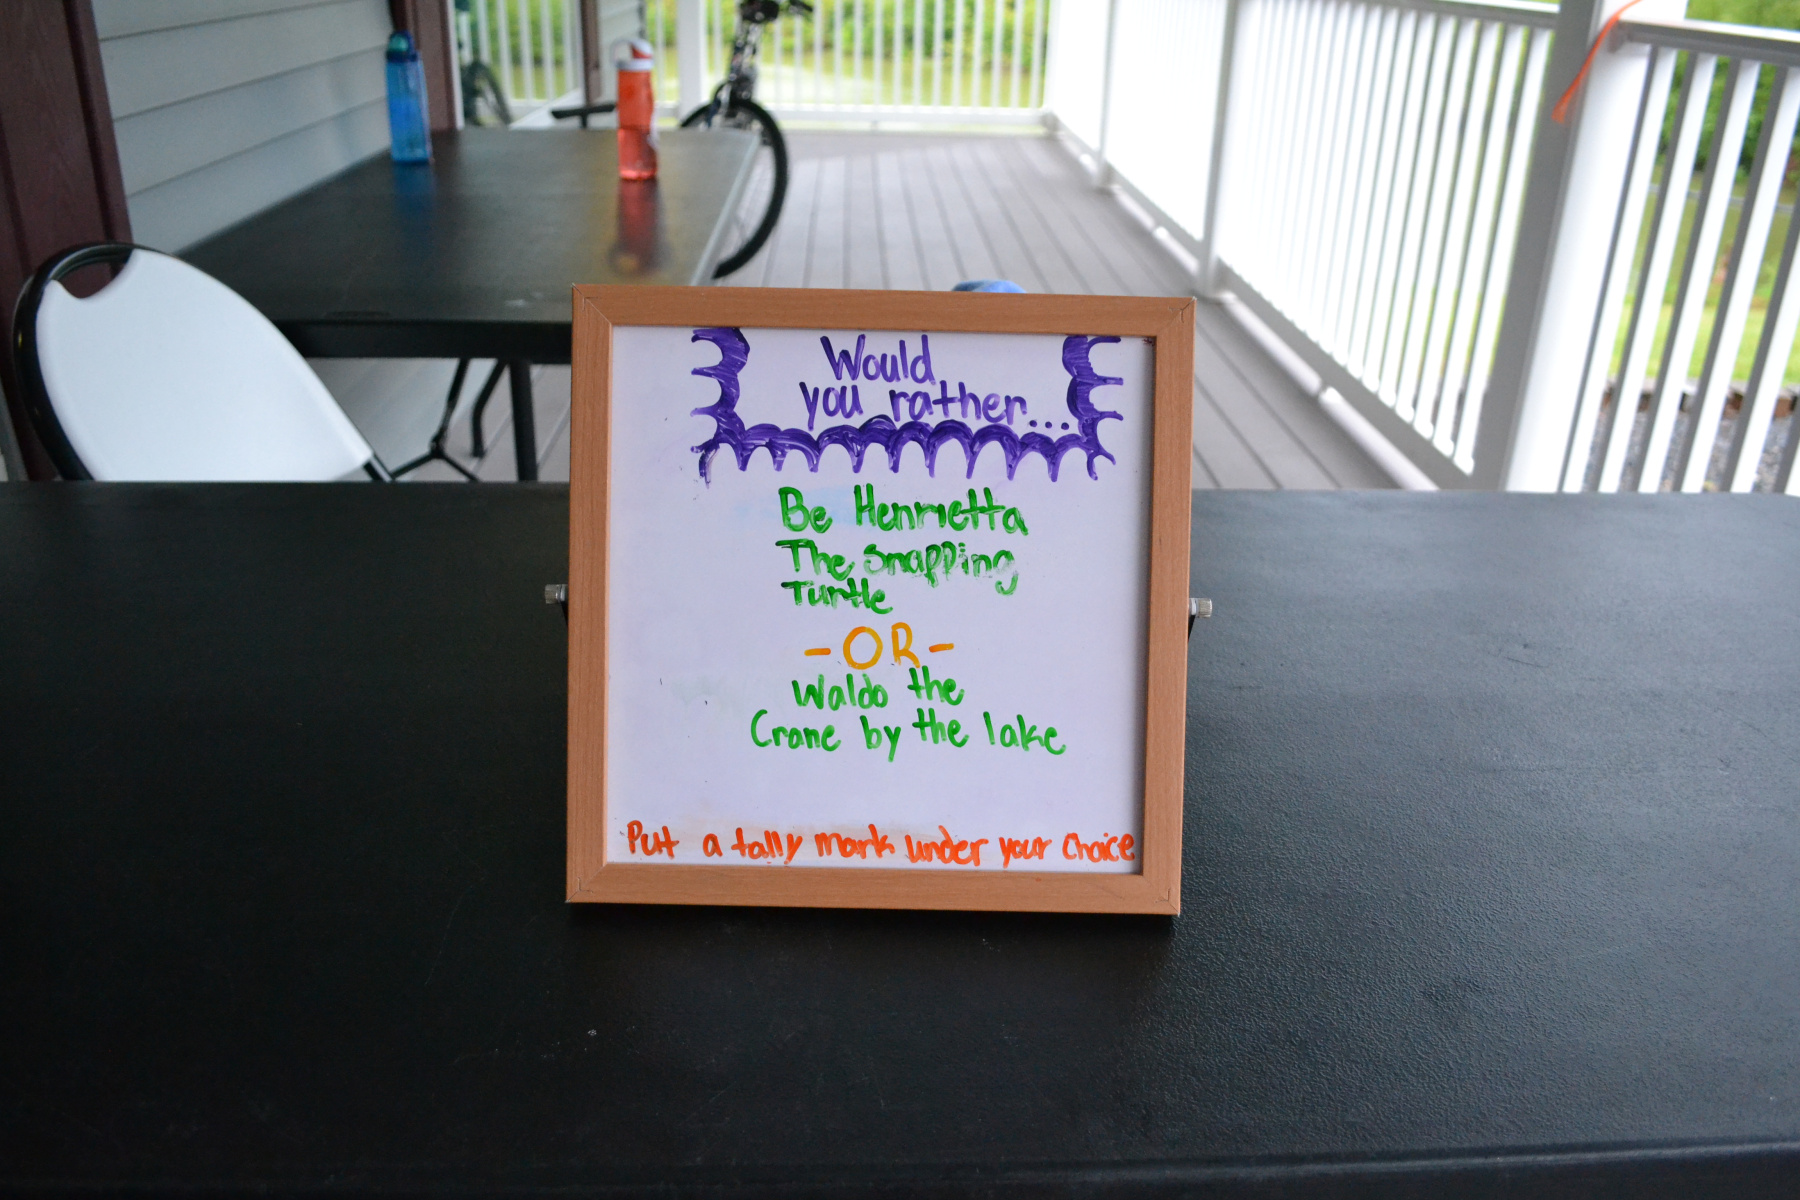 Would
you rather...
Be Henrietta
The Snapping
Turtle
-OR-
Waldo the
Crane by the lake
Put a tally mark under your choice